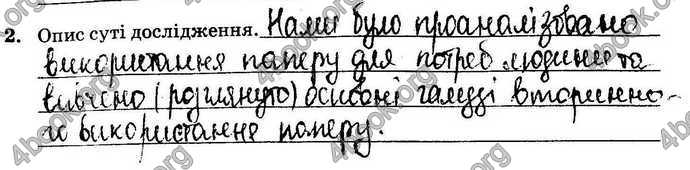 2. Опис суті дослідження. Нами було проаналізовано
використання паперу для потреб людини та
вивчено (розглянуто) основні галузі вторинно-
го використання паперу.